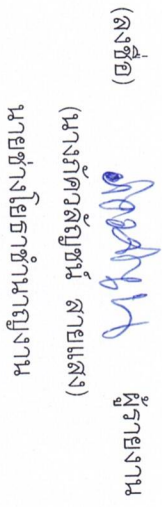 (ลงชื่อ) ผู้รายงาน
(นางภัควลัญชน์ สายแสง)
นายช่างโยธาชำนาญงาน